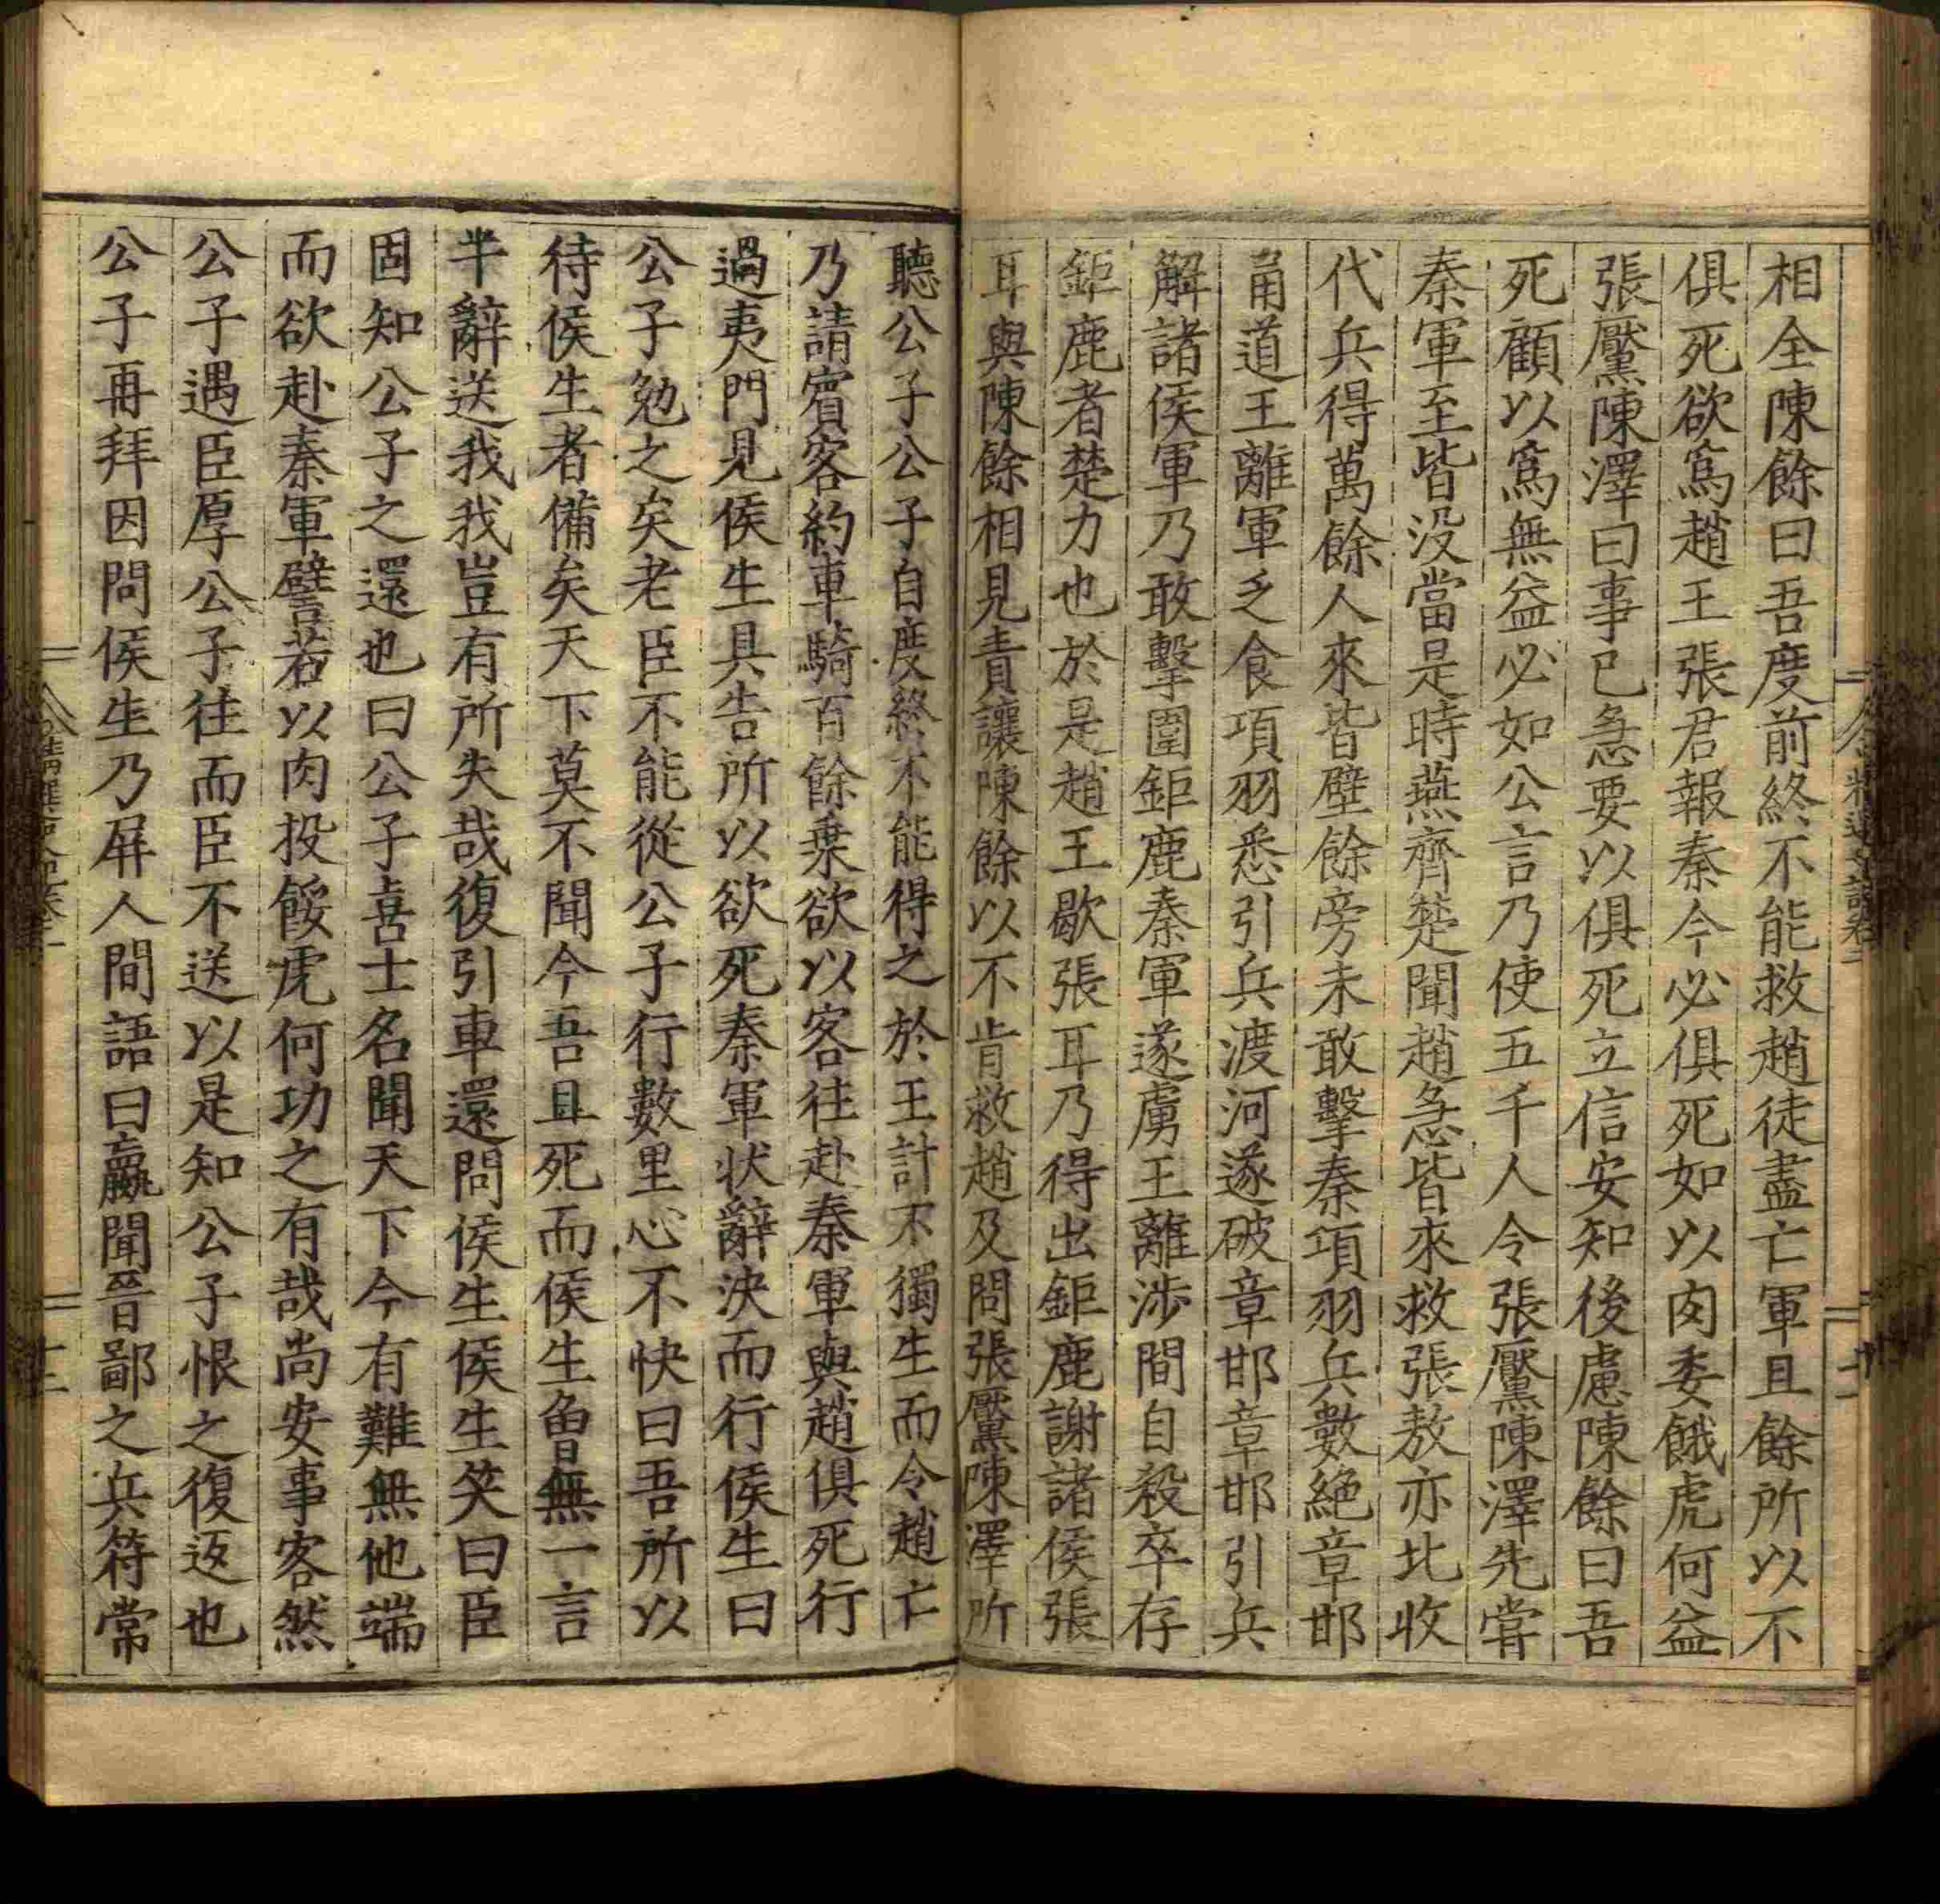 相全陳餘曰吾度前終不能救趙徒盡亡軍且餘所以不
俱死欲爲趙王張君報秦今必俱死如以肉委餓虎何益
張黶陳澤曰事已急要以俱死立信安知後慮陳餘曰吾
死顧以爲無益必如公言乃使五千人令張黶陳澤先嘗
秦軍至皆没當是時燕齊楚聞趙急皆來救張敖亦北收
代兵得萬餘人來皆壁餘旁未敢擊秦項羽兵數絶章邯
甬道王離軍乏食項羽悉引兵渡河遂破章邯章邯引兵
解諸侯軍乃敢擊圍鉅鹿秦軍遂虜王離涉間自殺卒存
鉅鹿者楚力也於是趙王歇張耳乃得出鉅鹿謝諸侯張
耳與陳餘相見責讓陳餘以不肯救趙及問張黶陳澤所
聽公子公子自度終不能得之於王計不獨生而令趙亡
乃請賓客約車騎百餘乗欲以客往赴秦軍與趙俱死行
過夷門見侯生具告所以欲死秦軍状辭決而行侯生曰
公子勉之矣老臣不能從公子行數里心不快曰吾所以
待侯生者備矣天下莫不聞今吾且死而侯生魯無一言
半辭送我我豈有所失哉復引車還問侯生侯生笑曰臣
固知公子之還也曰公子喜士名聞天下今有難無他端
而欲赴秦軍譬若以肉投餒虎何功之有哉尚安事客然
公子遇臣厚公子往而臣不送以是知公子恨之復返也
公子再拜因問侯生乃屏人間語曰嬴聞晉鄙之兵符常